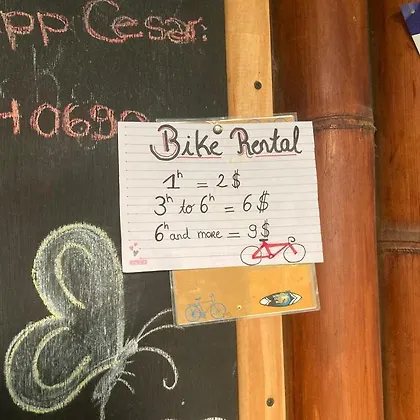 pp Cesar:
H0690
Bike Rental
1h = 2 $
3h to 6h = 6 $
6h and more = 9 $